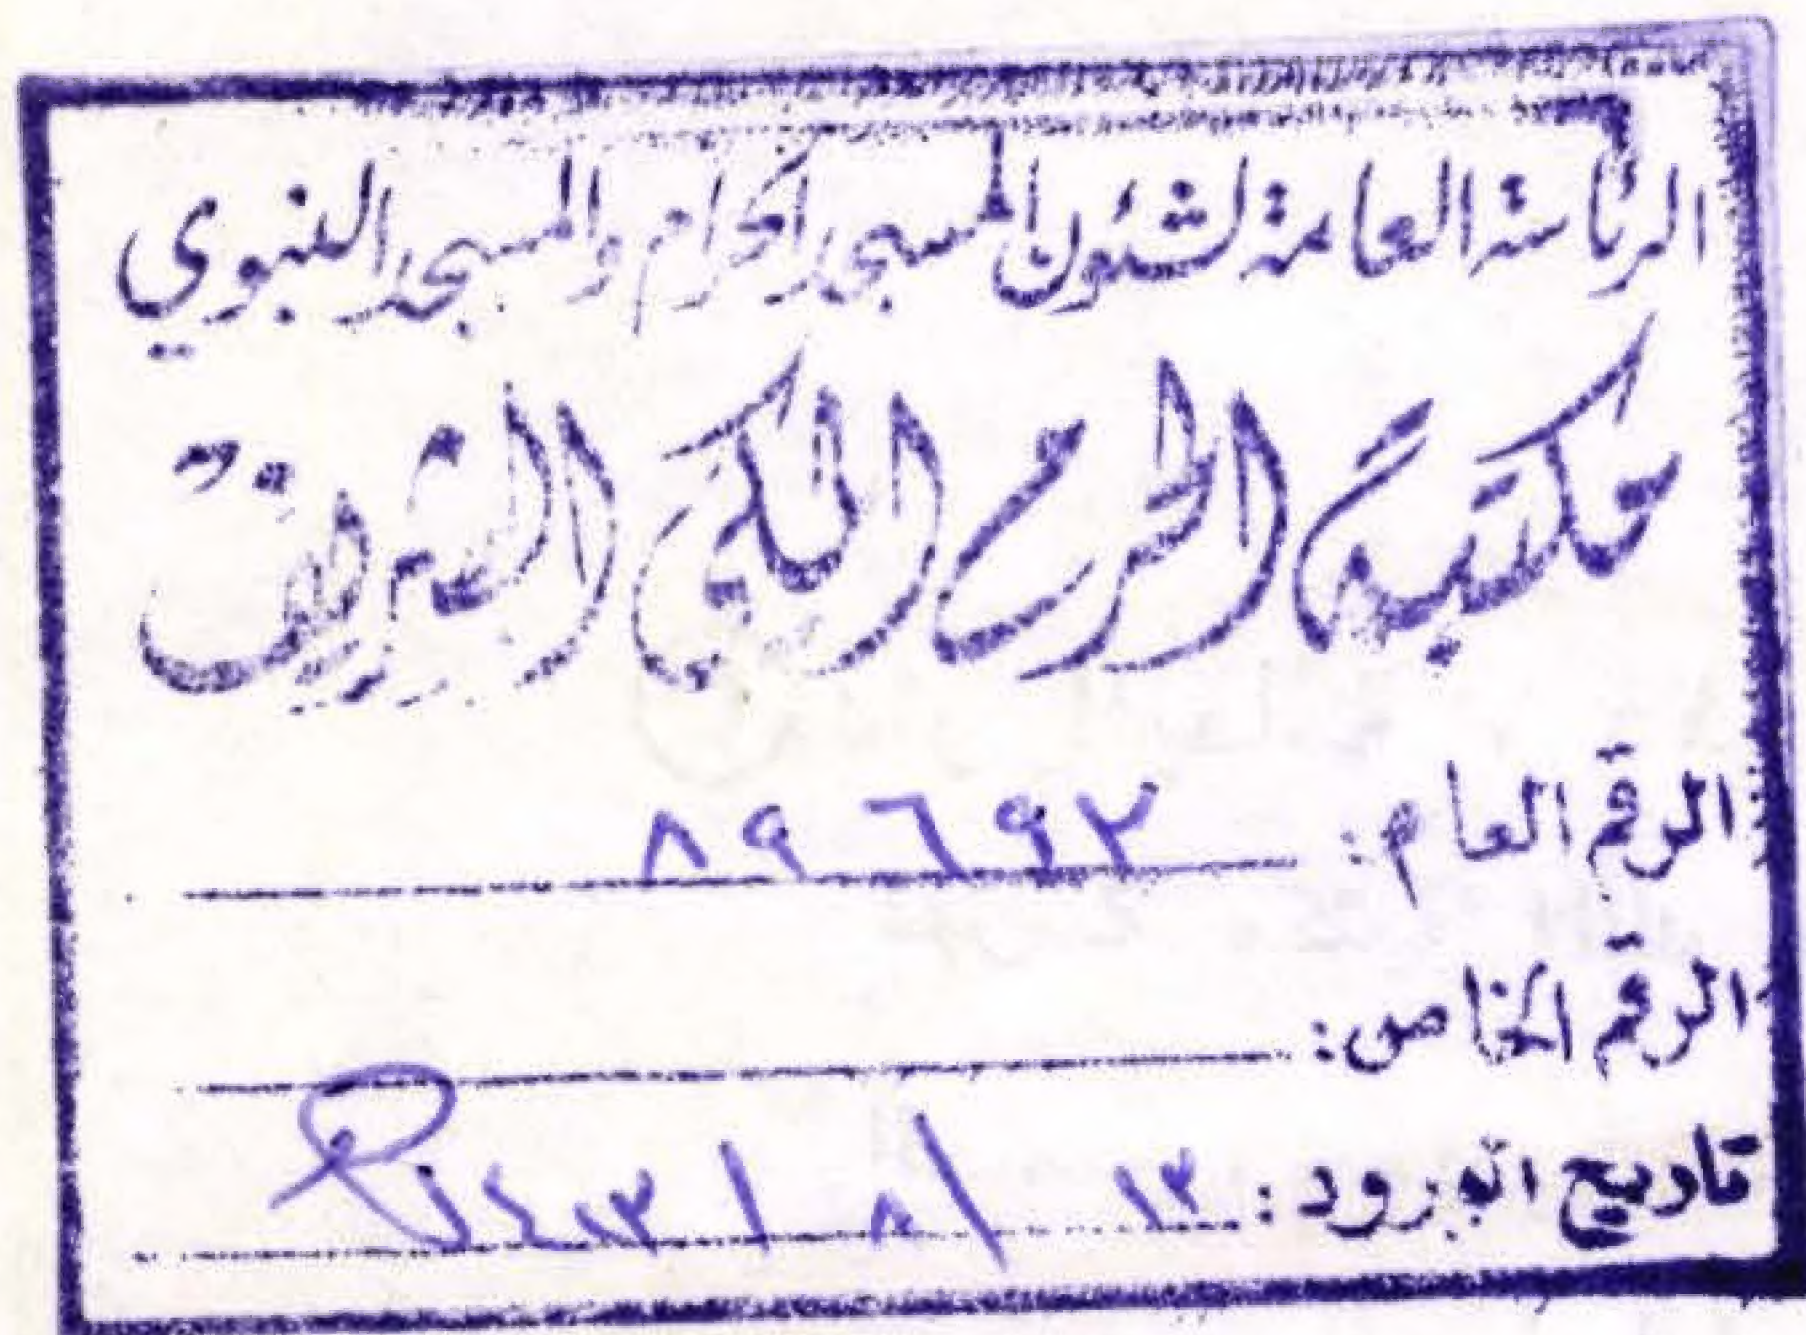 الرئاسة العامة لشئون المسجد الحرام والمسجد النبوي
مكتبة الحرم المكي الشريف
الرقم العام: ٨٩٦٩٢
الرقم الخاص:
تاريخ الورود: ١٢ / ٨ / ١٤١٢